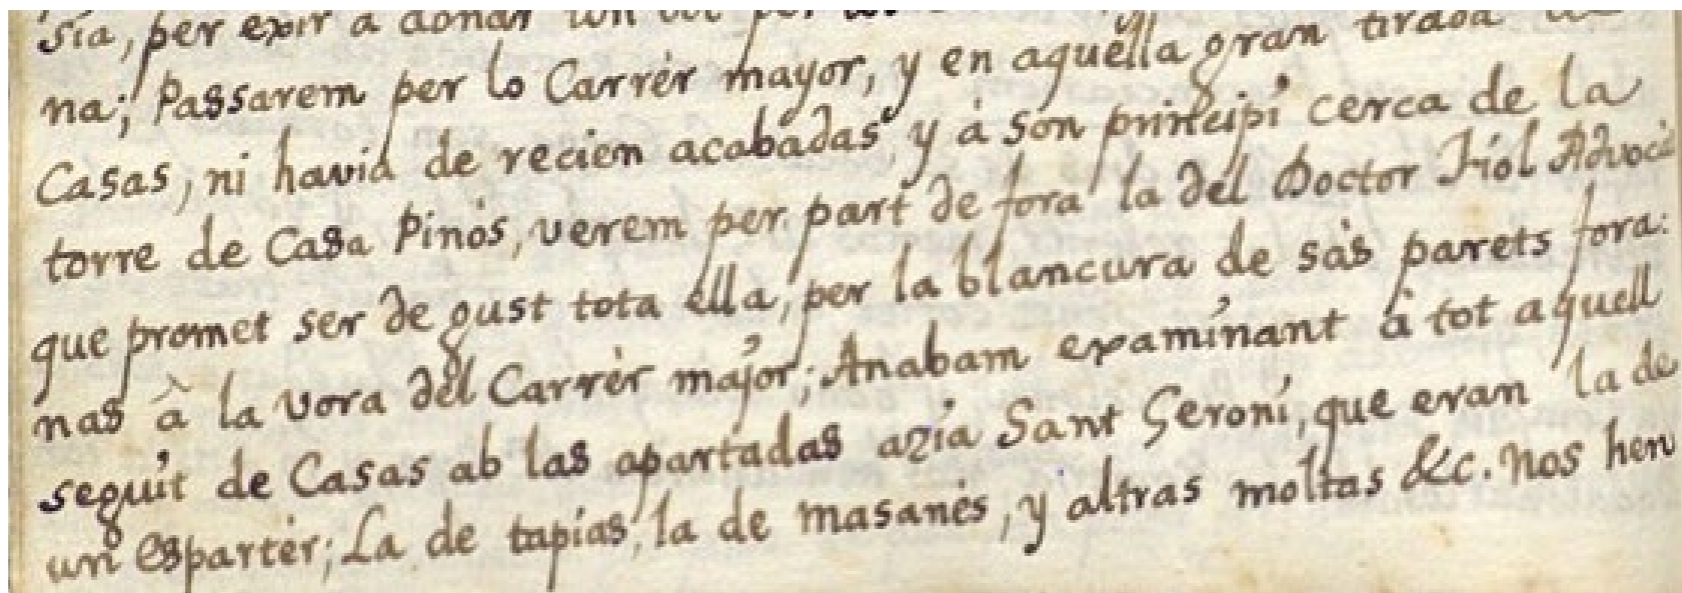 sia, per exir a donar un vol per
na; Passarem per lo Carrèr mayor, y en aquella gran tirada de
Casas, ni havia de recien acabadas y à son principi cerca de la
torre de Casa Pinós, verem per part de fora la del Doctor Fiol Advocà
que promet ser de gust tota ella, per la blancura de sas parets fora:
nas à la vora del Carrèr major; Anabam examinant à tot aquell
seguit de Casas ab las apartadas azia Sant Geroni, que eran la de
un Espartér; La de tapias, la de masanés, y altras moltas &c. Nos hen